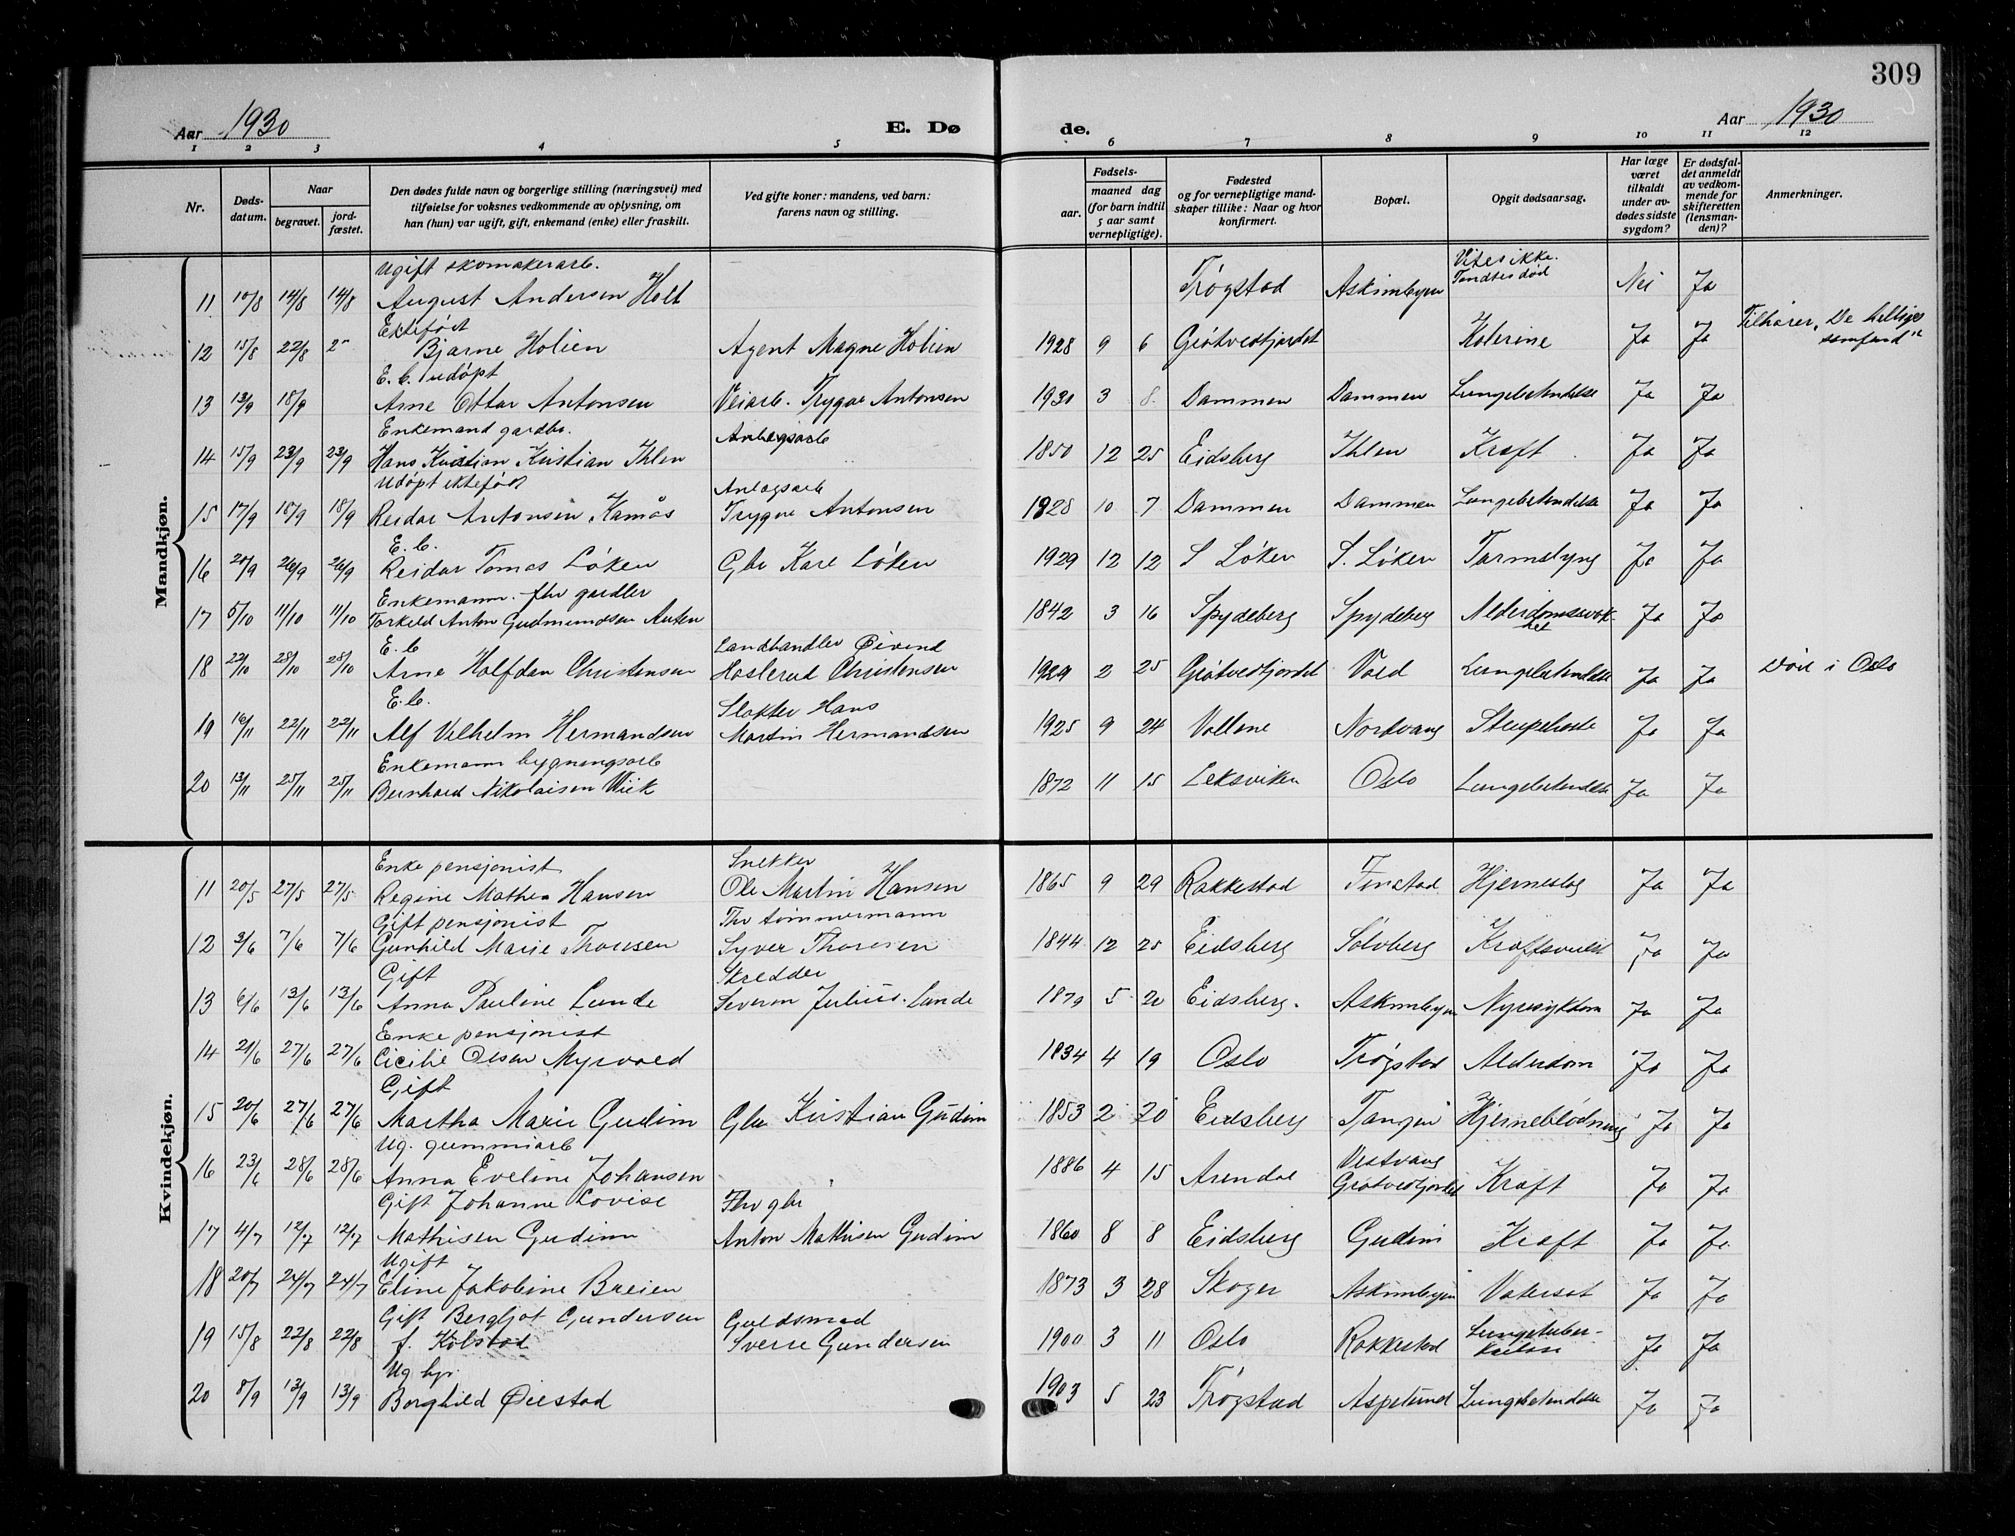 309
Aar 1930 E. Dø de. Aar 1930
1 2 3 4 5 6 7 8 9 10 11 12
Nr.
Døds-
datum.
Naar
begravet.
jord-
fæstet.
Den dødes fulde navn og borgerlige stilling (næringsvei) med
tilføielse for voksnes vedkommende av oplysning, om
han (hun) var ugift, gift, enkemand (enke) eller fraskilt.
Ved gifte koner: mandens, ved barn:
farens navn og stilling.
Fødsels-
aar.
maaned dag
(for barn indtil
5 aar samt
vernepligtige).
Fødested
og for vernepligtige mand-
skaper tillike: Naar og hvor
konfirmert.
Bopæl.
Opgit dødsaarsag.
Har læge
været
tilkaldt
under av-
dødes sidste
sygdom?
Er dødsfal-
det anmeldt
av vedkom-
mende for
skifteretten
(lensman-
den)?
Anmerkninger.
Mandkjøn.
Ugift skomakerarb. Vites ikke.
11 10/8 14/8 14/8 August Andersen Holt Trøgstad Askimbyen Fandtes død Nei Ja
Ektefødt Tilhører „De helliges
12 15/8 22/8 2- Bjarne Holien Agent Magne Holien 1928 9 6 Grøtvedtjordet Kolerine Ja Ja samfund"
E. b. udøpt
13 13/9 18/9 Arne Ottar Antonsen Veiarb. Trygve Antonsen 1930 3 8. Dammen Dammen Lungebetendelse Ja Ja
Enkemand gardbr. Anlegsarb
14 15/9 23/9 23/9 Hans Kristian Kristian Ihlen 1850 12 25 Eidsberg Ihlen Kræft Ja Ja
Udøpt ektefødt Anlægsarb
15 17/9 18/9 18/9 Reidar Antonsen Kamås Trygve Antonsen 1928 10 7 Dammen Dammen Lungebetendelse Ja Ja
E. b.
16 20/9 26/9 26/9 Reidar Tomas Løken Gbr Kåre Løken 1929 12 12 S Løken S. Løken Tarmslyng Ja Ja
Enkemann. fhv gardbr
17 5/10 11/10 11/10 Torkeld Anton Gudmundsen 1842 3 16 Spydeberg Spydeberg Alderdomssvak- Ja Ja
het
E. b Landhandler Øivind
18 22/10 28/10 28/10 Arne Halfdan Christensen Haslerud Christensen 1929 2 25 Grøtvedtjordet Vold Lungebetendelse Ja Ja Død i Oslo
E. b. Slakter Hans
19 16/11 22/11 22/11 Alf Vilhelm Hermandsen Martin Hermandsen 1925 9 24 Vollene Nordvang Ja Ja
Enkemann bygningsarb
20 13/11 25/11 25/11 Bernhard Nikolaisen Wiik 1872 11 15 Leksviken Oslo Lungebetendelse Ja Ja
Kvindekjøn.
Enke pensjonist Snekker
11 20/5 27/5 27/5 Regine Mathea Hansen Ole Martin Hansen 1865 9 29 Rakkestad Finstad Hjerneslag Ja Ja
Gift pensjonist Fhv tømmermann
12 3/6 7/6 7/6 Gunhild Marie Thoresen Syver Thoresen 1844 12 25 Eidsberg Solvberg Kræftsvulst Ja Ja
Gift Skredder
13 6/6 13/6 13/6 Anna Pauline Lunde Severin Julius Lunde 1879 5 20 Eidsberg. Askimbyen Nyresykdom Ja Ja
Enke pensjonist
14 21/6 27/6 27/6 Cicilie Olsen Myrvold 1834 4 19 Oslo Trøgstad Alderdom Ja Ja
Gift
15 20/6 27/6 27/6 Martha Marie Gudim Gbr Kristian Gudim 1853 2 20 Eidsberg Tangen Hjerneblødning Ja Ja
Ug. gummiarb Vestvang
16 23/6 28/6 28/6 Anna Eveline Johansen 1886 4 15 Arendal Grøtvedtjordet Kræft Ja Ja
Gift Johanne Lovise Fhv gbr
17 4/7 12/7 12/7 Mathisen Gudim Anton Mathisen Gudim 1860 8 8 Eidsberg Gudim Kræft Ja Ja
Ugift
18 20/7 24/7 24/7 Eline Jakobine Breien 1873 3 28 Skoger Askimbyen Vatersot Ja Ja
Gift Bergljot Gundersen Guldsmed Lungetuber-
19 15/8 22/8 22/8 f. Kolstad Sverre Gundersen 1900 3 11 Oslo Rakkestad kulose Ja Ja
Ug hjv
20 8/9 13/9 13/9 Borghild Øiestad 1903 5 23 Trøgstad Aspelund Lungebetendelse Ja Ja